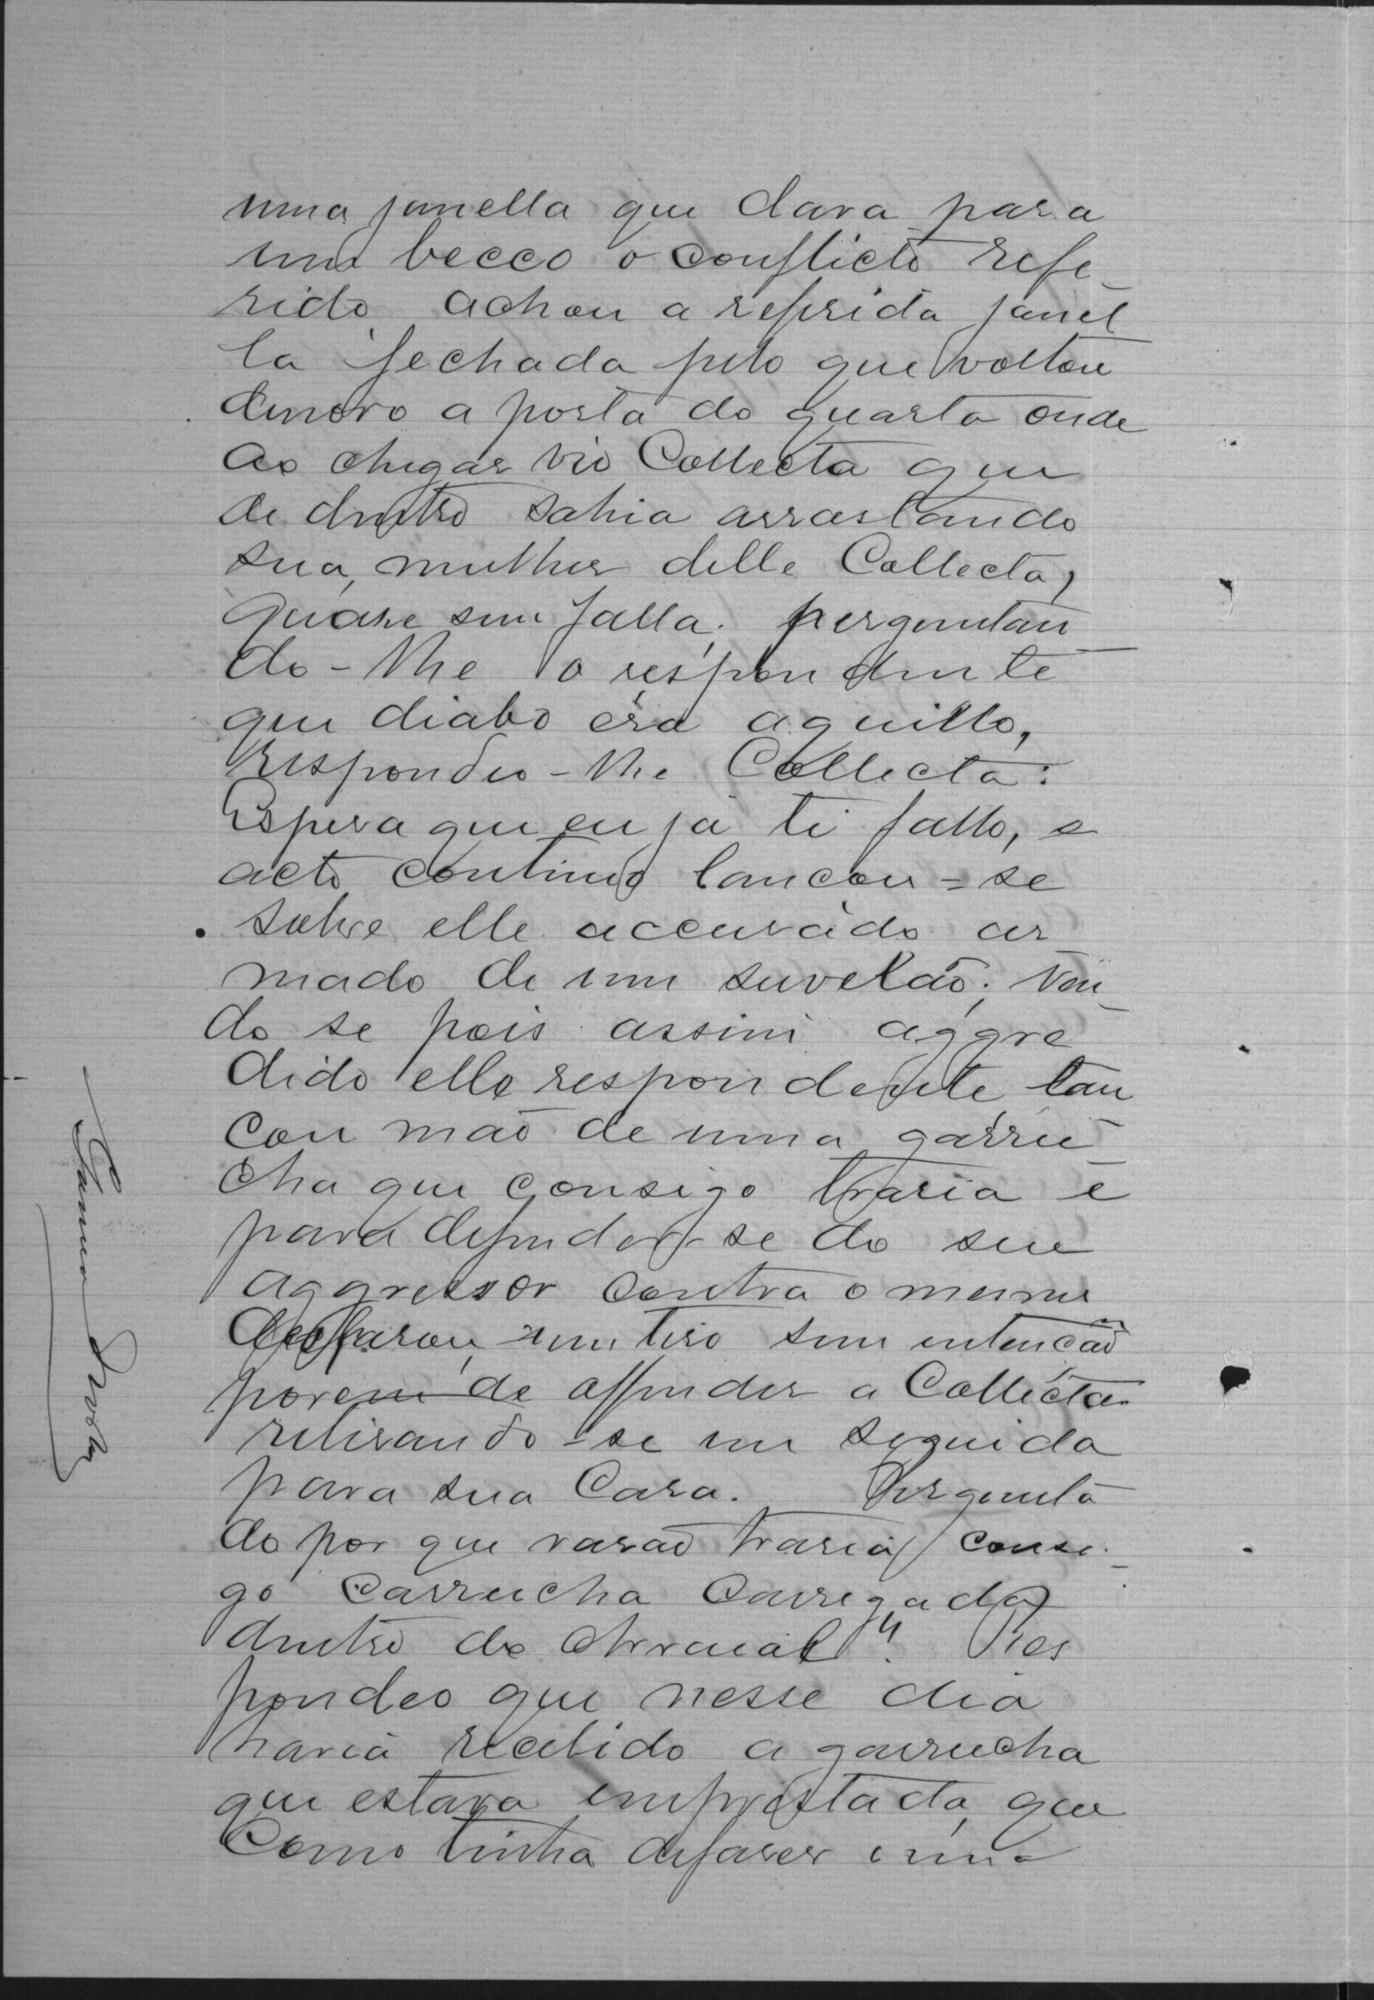 uma janella que dava para
um becco o conflicto refe-
rido, achou a referida janel-
la fechada pelo que voltou
denovo a porta do quarto onde
ao chegar vio Collecta que
de dentro sahia arrastando
sua, mulher delle Collecta,
quase sem falla; perguntan-
do-lhe o respondente
que diabo era aquillo,
respondeo-lhe Collecta:
Espera que eu já ti fallo, e
acto continuo lançou=se
sobre elle accusado ar-
mado de um suvelão; Ven-
do se pois assim aggre-
dido elle respondente lan-
çou mão de uma garru-
cha que consigo trasia e
para defender-se do seu
aggressor contra o mesmo
desfarou um tiro sem intenção
porem de offender a Collecta
retirando-se em seguida
para sua Casa. Pergunta-
do por que rasão trasia consi-
go Carrucha Carregada
dentro do Arraial? Res-
pondeo que nesse dia
havia recebido a garrucha
que estava emprestada, que
Como tinha defaser uma
Gama